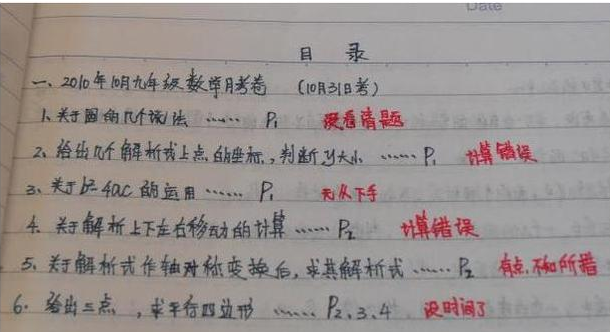 Date
目 录
一、2010年10月九年级数学月考卷 (10月31日考)
1、关于圆的几个说法 …… P1 没看清题
2、给出几个解析式上点的坐标,判断y大小 …… P1 计算错误
3、关于b²-4ac的运用 …… P1 无从下手
4、关于解析上下左右移动的计算 …… P2 计算错误
5、关于解析式作轴对称变换后,求其解析式 …… P2 有点不知所措
6、给出三点,求平行四边形 …… P2、3、4 没时间了